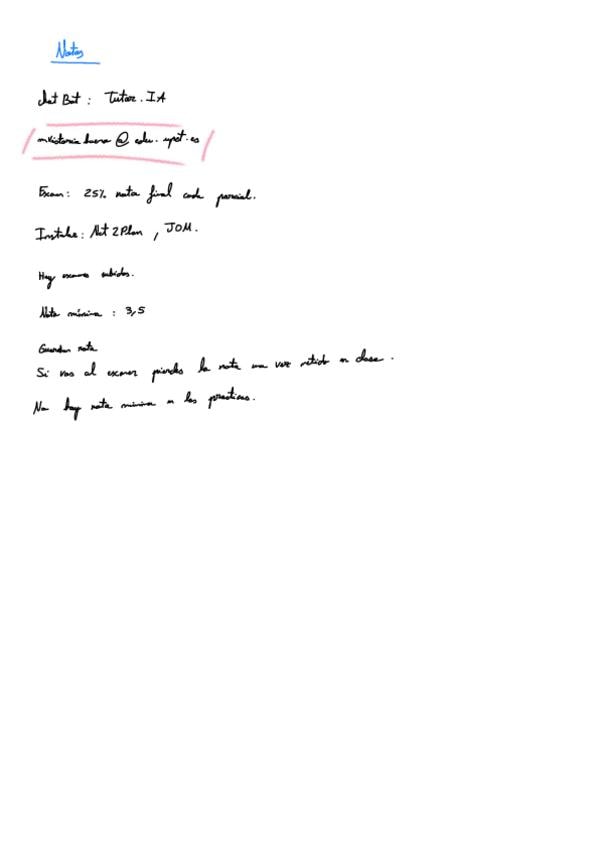 Notas
Chat Bot : Tutor.IA
mvictoria.bueno @ edu.upct.es
Examen: 25% nota final cada parcial.
Instalar: Net2Plan , JOM.
Hay examenes subidos.
Nota mínima : 3,5
Guardan nota
Si vas al examen pierdes la nota una vez metido en clase.
No hay nota minima en las practicas.